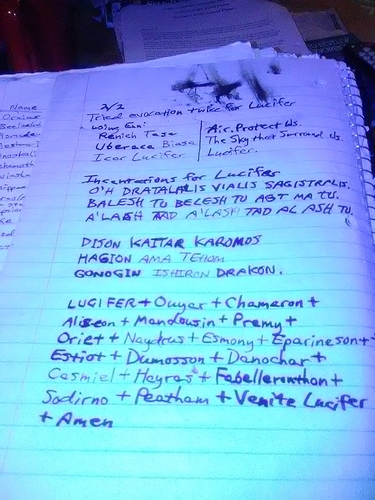 Name
2/2
Tried evocation twice for Lucifer
using Enn:
Renich Tasa
Uberaca Biasa
Icar Lucifer
Air. Protect Us.
The Sky that Surround Us
Lucifer.
Incantations for Lucifer
O'H DRATALALIS VIALIS SAGISTRALIS.
BALESH TO BELESH TO AGT MA TU.
A'LASH TAD A'LASH TAD AL ASH TU.
DISON KAITAR KAROMOS
HAGION AMA TEHOM
GONOGIN ISHIRON DRAKON.
LUCIFER + Ouyar + Chameron +
Aliseon + Mandousin + Premy +
Oriet + Naydrus + Esmony + Eparineson +
Estiot + Dumosson + Danochar +
Casmiel + Hayras + Fabelleronthon +
Sodirno + Peatham + Venite Lucifer
+ Amen